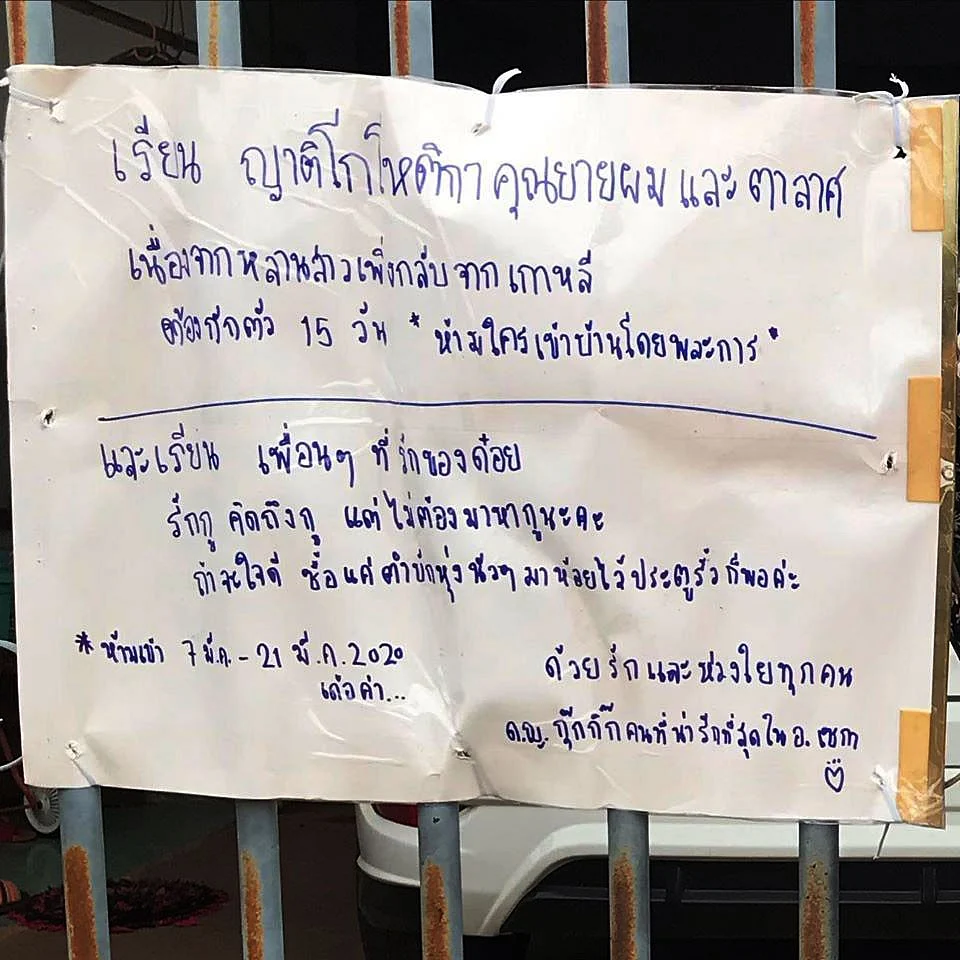 เรียน ญาติโกโหติกา คุณยายผม และ ตาลาศ
เนื่องจากหลานสาวเพิ่งกลับจากเกาหลี
ต้องกักตัว 15 วัน * ห้ามใครเข้าบ้านโดยพละการ *
และเรียน เพื่อนๆ ที่รักของด๋อย
รักกู คิดถึงกู แต่ไม่ต้องมาหากูนะคะ
ถ้าจะใจดี ซื้อแค่ตำบักหุ่งนัวๆ มาห้อยไว้ประตูรั้วก็พอค่ะ
* ห้ามเข้า 7 มี.ค. - 21 มี.ค. 2020
เด้อค่า...
ด้วยรักและห่วงใยทุกคน
ด.ญ. กุ๊กกิ๊ก คนที่น่ารักที่สุดใน อ. เซกา